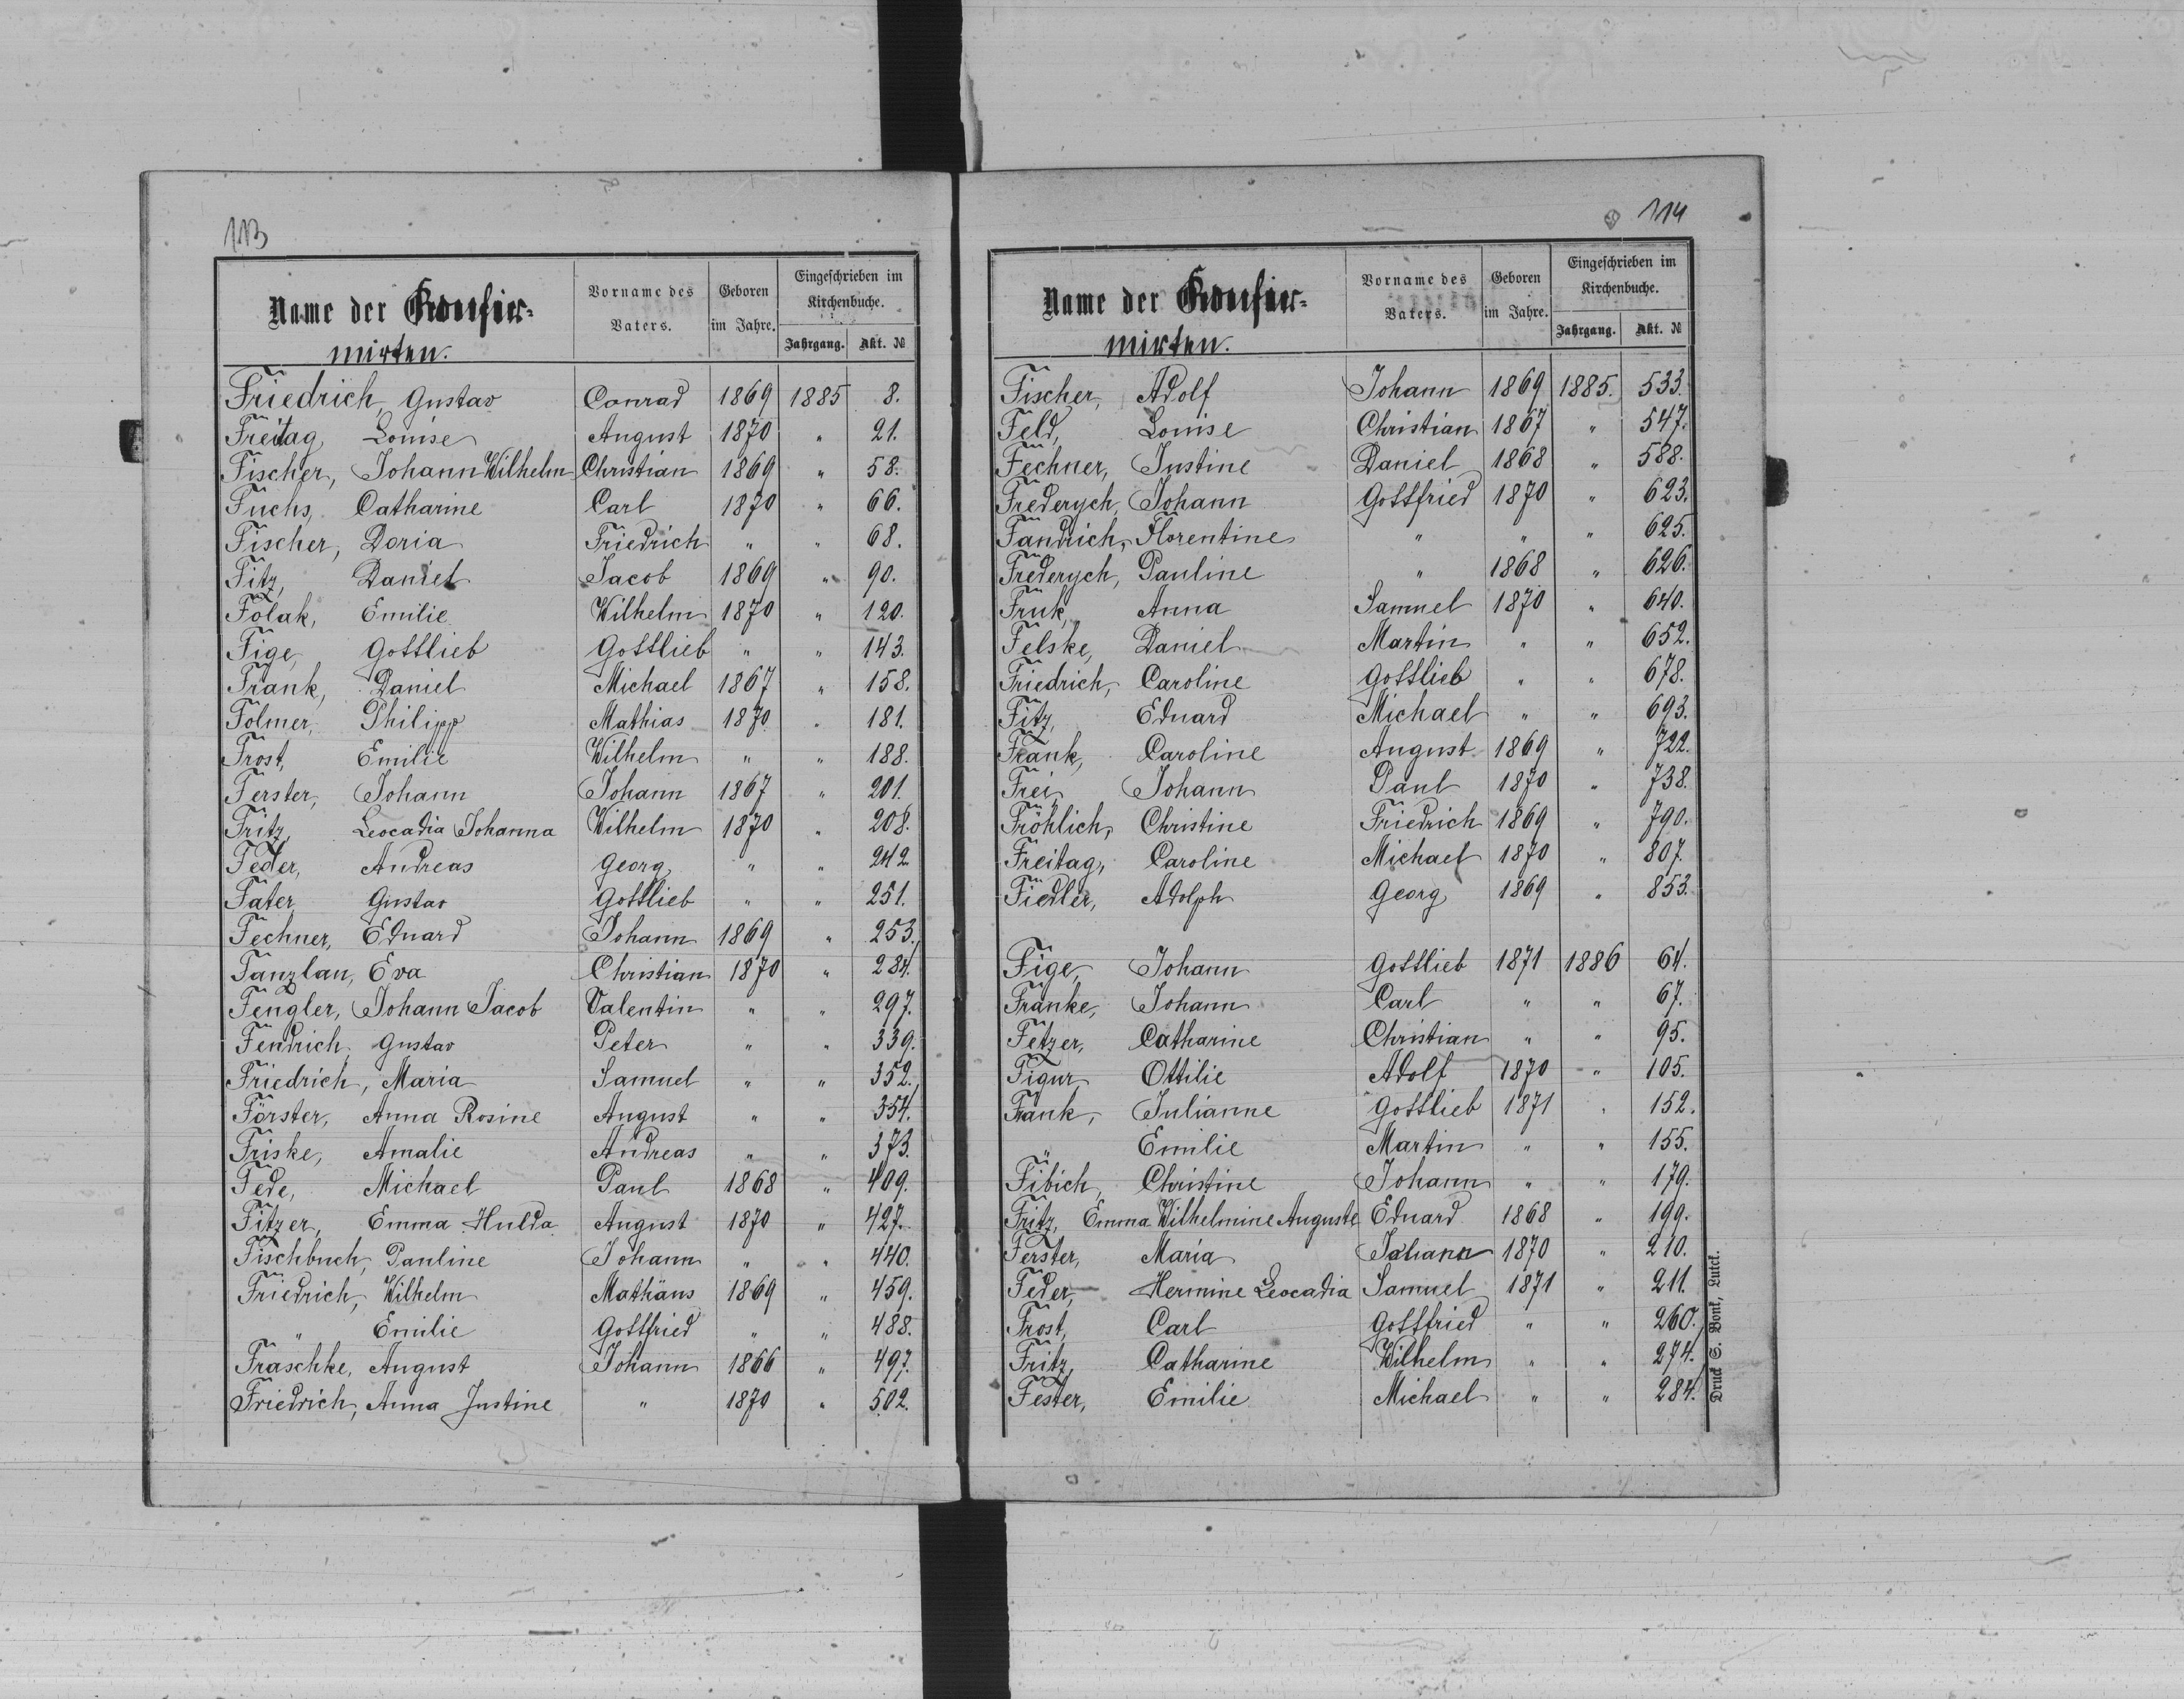 113
Name der Konfir-
mirten.
Vorname des
Vaters.
Geboren
im Jahre.
Eingeschrieben im
Kirchenbuche.
Jahrgang. Akt. №
Friedrich, Gustav Conrad 1869 1885 8.
Freitag, Louise August 1870 " 21.
Fischer, Johann Wilhelm Christian 1869 " 58.
Fuchs, Catharine Carl 1870 " 66.
Fischer, Doria Friedrich " " 68.
Fitz, Daniel Jacob 1869 " 90.
Folak, Emilie Wilhelm 1870 " 120.
Fige, Gottlieb Gottlieb " " 143.
Frank, Daniel Michael 1867 " 158.
Folmer, Philipp Mathias 1870 " 181.
Frost, Emilie Wilhelm " " 188.
Ferster, Johann Johann 1867 " 201.
Fritz, Leocadia Johanna Wilhelm 1870 " 208.
Feder, Andreas Georg " " 242.
Fater Gustav Gottlieb " " 251.
Fechner, Eduard Johann 1869 " 253.
Fanzlau, Eva Christian 1870 " 284.
Fengler, Johann Jacob Valentin " " 297.
Fendrich Gustav Peter " " 339.
Friedrich, Maria Samuel " " 352.
Förster, Anna Rosine August " " 354.
Friske, Amalie Andreas " " 373.
Fede, Michael Paul 1868 " 409.
Fitzer, Emma Hulda August 1870 " 427.
Fischbuch, Pauline Johann " " 440.
Friedrich, Wilhelm Mathäus 1869 " 459.
" Emilie Gottfried " " 488.
Fraschke, August Johann 1866 " 497.
Friedrich, Anna Justine " 1870 " 502.
114
Name der Konfir-
mirten.
Vorname des
Vaters.
Geboren
im Jahre.
Eingeschrieben im
Kirchenbuche.
Jahrgang. Akt. №
Fischer, Adolf Johann 1869 1885. 533.
Feld, Louise Christian 1867 " 547.
Fechner, Justine Daniel 1868 " 588.
Frederych, Johann Gottfried 1870 " 623.
Fandrich, Florentine " " " 625.
Frederych, Pauline " 1868 " 626.
Fruk, Anna Samuel 1870 " 640.
Felske, Daniel Martin " " 652.
Friedrich, Caroline Gottlieb " " 678.
Fitz, Eduard Michael " " 693.
Frank, Caroline August 1869 " 722.
Frei, Johann Paul 1870 " 738.
Fröhlich, Christine Friedrich 1869 " 790.
Freitag, Caroline Michael 1870 " 807.
Fiedler, Adolph Georg 1869 " 853.
Fige, Johann Gottlieb 1871 1886 64.
Franke, Johann Carl " " 67.
Fetzer, Catharine Christian " " 95.
Figur, Ottilie Adolf 1870 " 105.
Frank, Julianne Gottlieb 1871 " 152.
" Emilie Martin " " 155.
Fibich, Christine Johann " " 179.
Fritz, Emma Wilhelmine Auguste Eduard 1868 " 199.
Ferster, Maria Johann 1870 " 210.
Feder, Hermine Leocadia Samuel 1871 " 211.
Frost, Carl Gottfried " " 260.
Fritz, Catharine Wilhelm " " 274.
Fester, Emilie Michael " " 284.
Druck S. Bonk, Lutck.